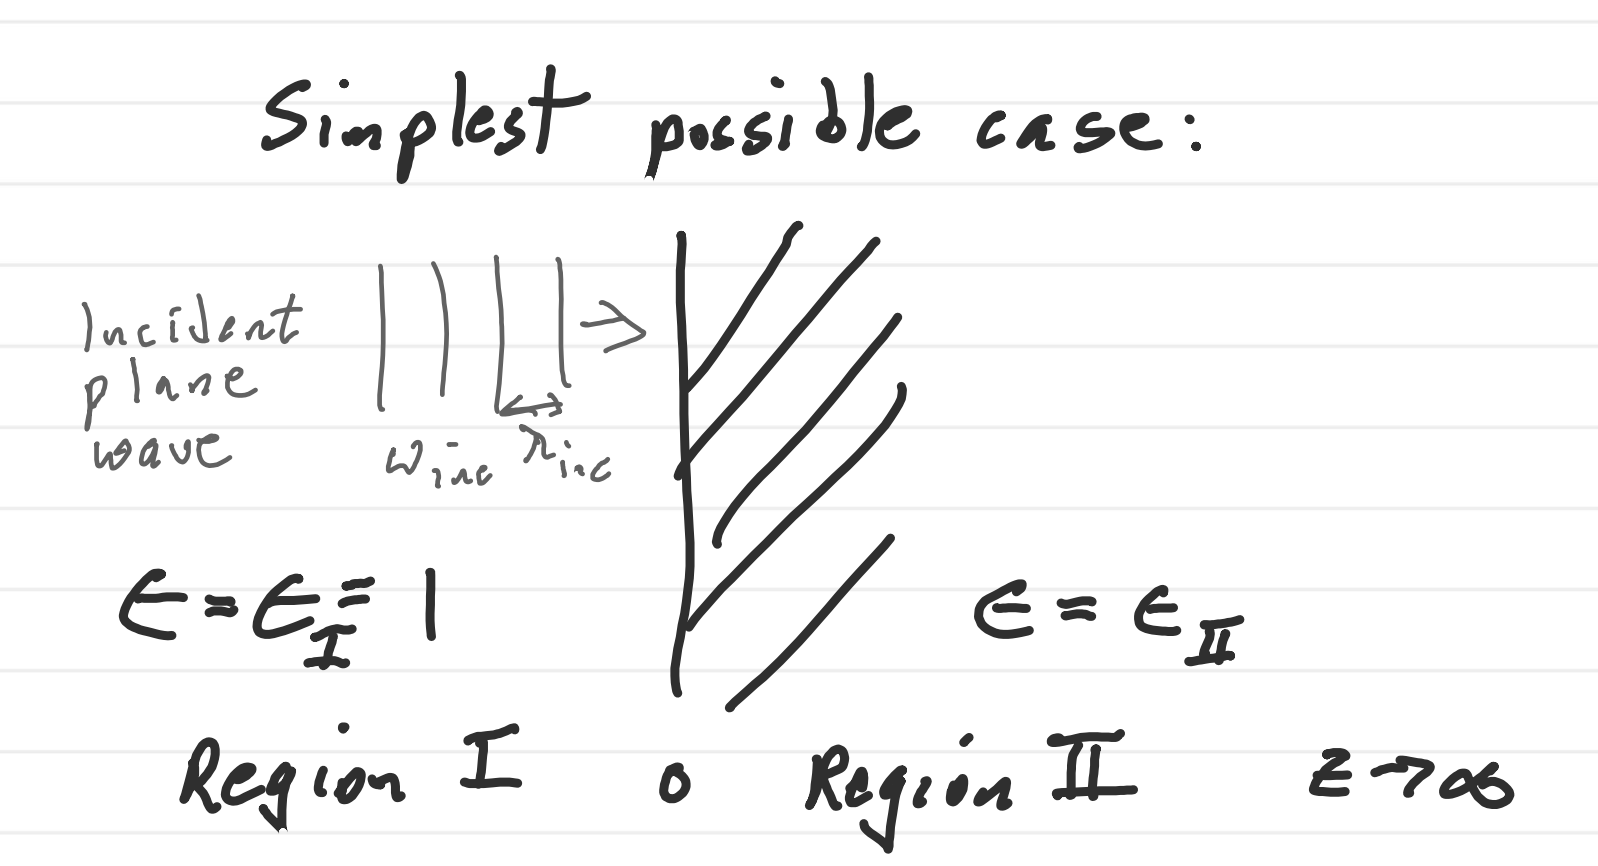 Simplest possible case:
Incident
plane
wave
ω_inc λ_inc
ϵ = ϵ_I = 1
ϵ = ϵ_II
Region I 0 Region II z→∞